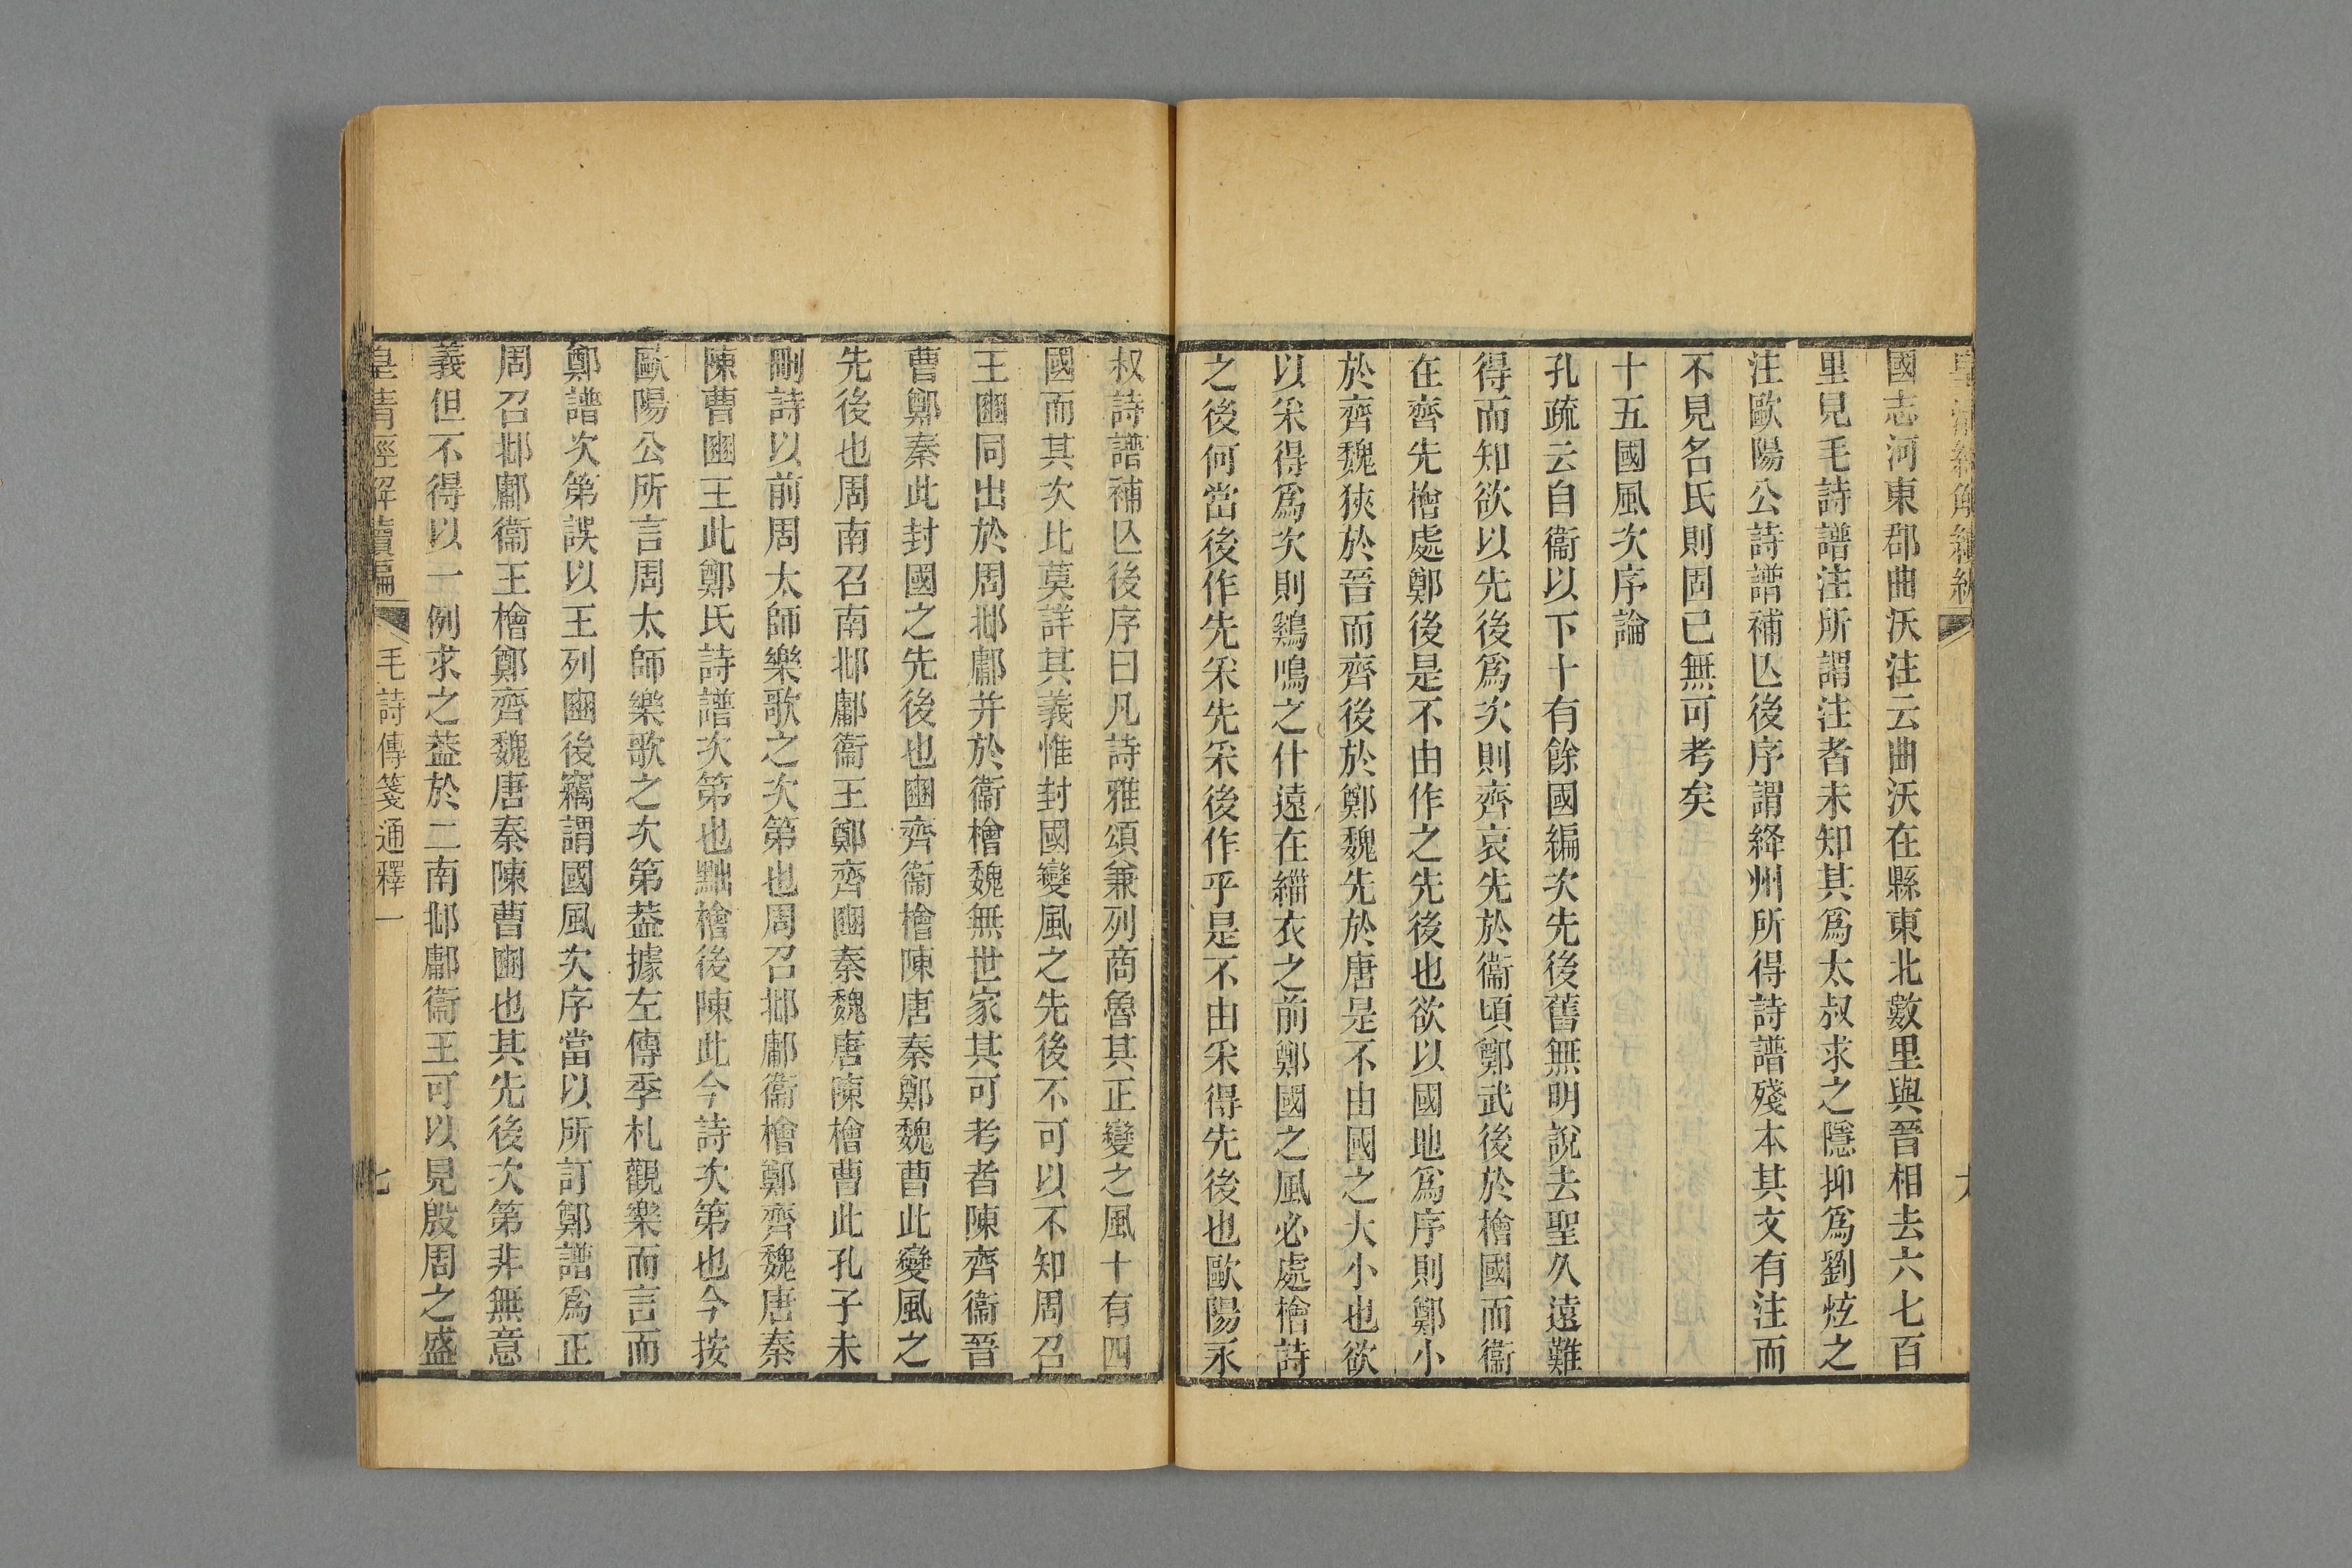 國志河東郡曲沃注云曲沃在縣東北數里與晉相去六七百
里見毛詩譜注所謂注者未知其爲太叔求之隱抑爲劉炫之
注歐陽公詩譜補亾後序謂絳州所得詩譜殘本其文有注而
不見名氏則固已無可考矣
十五國風次序論
孔疏云自衞以下十有餘國編次先後舊無明說去聖久遠難
得而知欲以先後爲次則齊哀先於衞頃鄭武後於檜國而衞
在齊先檜處鄭後是不由作之先後也欲以國地爲序則鄭小
於齊魏狹於晉而齊後於鄭魏先於唐是不由國之大小也欲
以采得爲次則鷄鳴之什遠在緇衣之前鄭國之風必處檜詩
之後何當後作先采先采後作乎是不由采得先後也歐陽永
叔詩譜補亾後序曰凡詩雅頌兼列商魯其正變之風十有四
國而其次比莫詳其義惟封國變風之先後不可以不知周召
王豳同出於周邶鄘并於衞檜魏無世家其可考者陳齊衞晉
曹鄭秦此封國之先後也豳齊衞檜陳唐秦鄭魏曹此變風之
先後也周南召南邶鄘衞王鄭齊豳秦魏唐陳檜曹此孔子未
刪詩以前周太師樂歌之次第也周召邶鄘衞檜鄭齊魏唐秦
陳曹豳王此鄭氏詩譜次第也黜檜後陳此今詩次第也今按
歐陽公所言周太師樂歌之次第葢據左傳季札觀樂而言而
鄭譜次第誤以王列豳後竊謂國風次序當以所訂鄭譜爲正
周召邶鄘衞王檜鄭齊魏唐秦陳曹豳也其先後次第非無意
義但不得以一例求之葢於二南邶鄘衞王可以見殷周之盛
皇清經解續編
毛詩傳箋通釋一
七